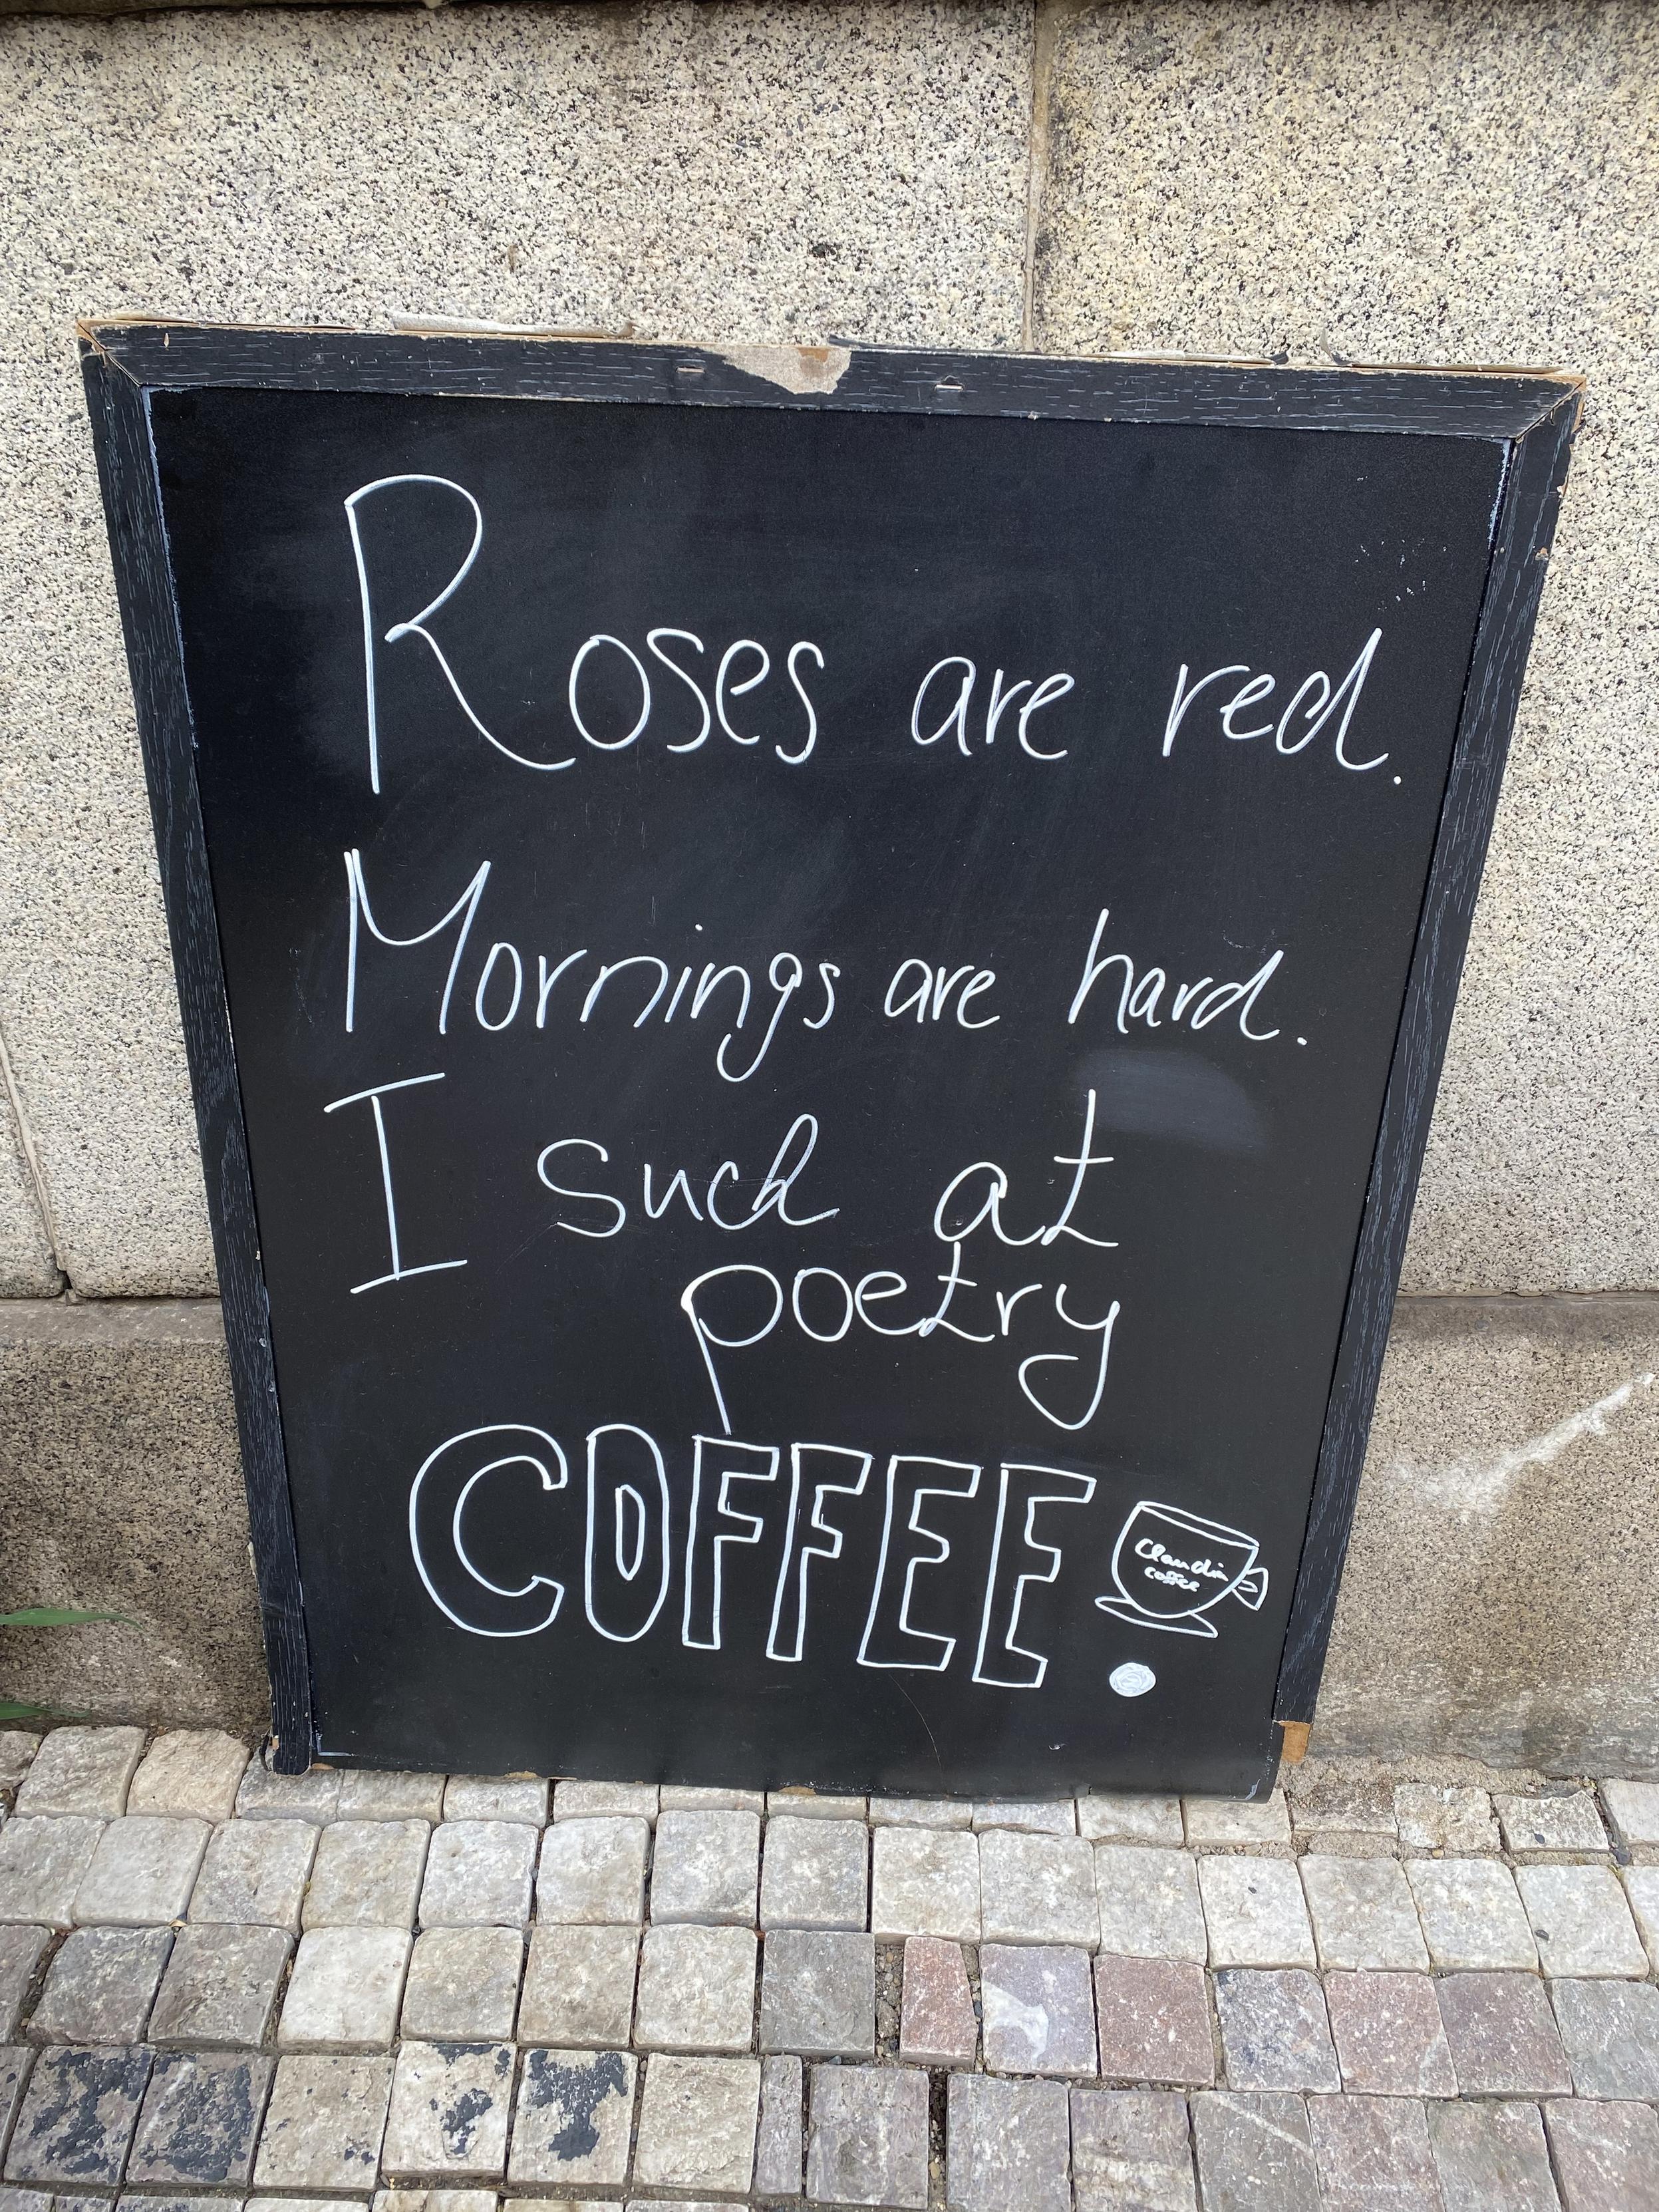 Roses are red.
Mornings are hard.
I suck at
poetry
COFFEE.
Claudia
coffee